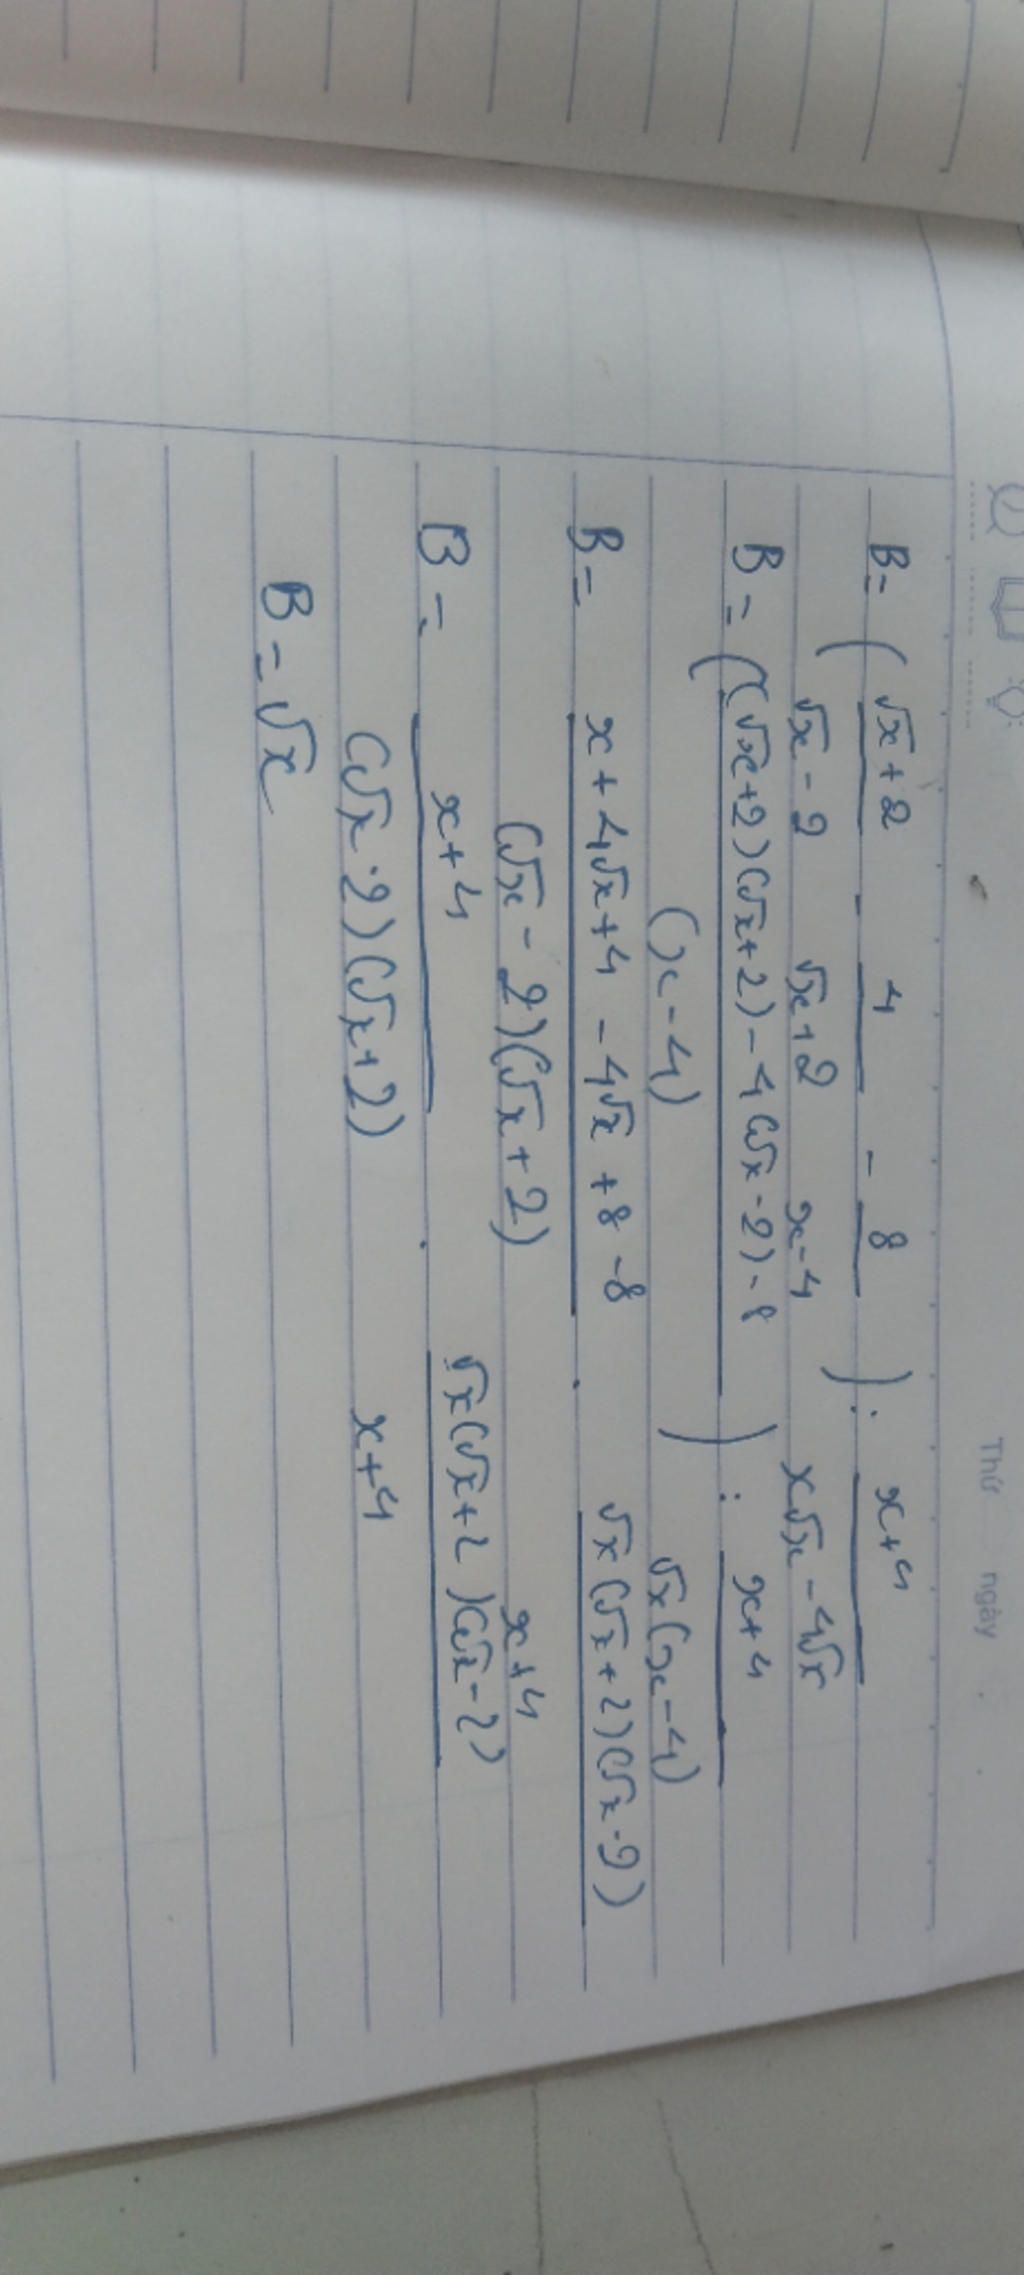 Thứ ngày
B = ( (√x+2)/(√x-2) - 4/(√x+2) - 8/(x-4) ) : (x+4)/(x√x-4√x)
B = ( ((√x+2)(√x+2)-4(√x-2)-8)/(x-4) ) : (x+4)/(√x(x-4))
B = (x+4√x+4-4√x+8-8)/((√x-2)(√x+2)) . (√x(√x+2)(√x-2))/(x+4)
B = (x+4)/((√x-2)(√x+2)) . (√x(√x+2)(√x-2))/(x+4)
B = √x